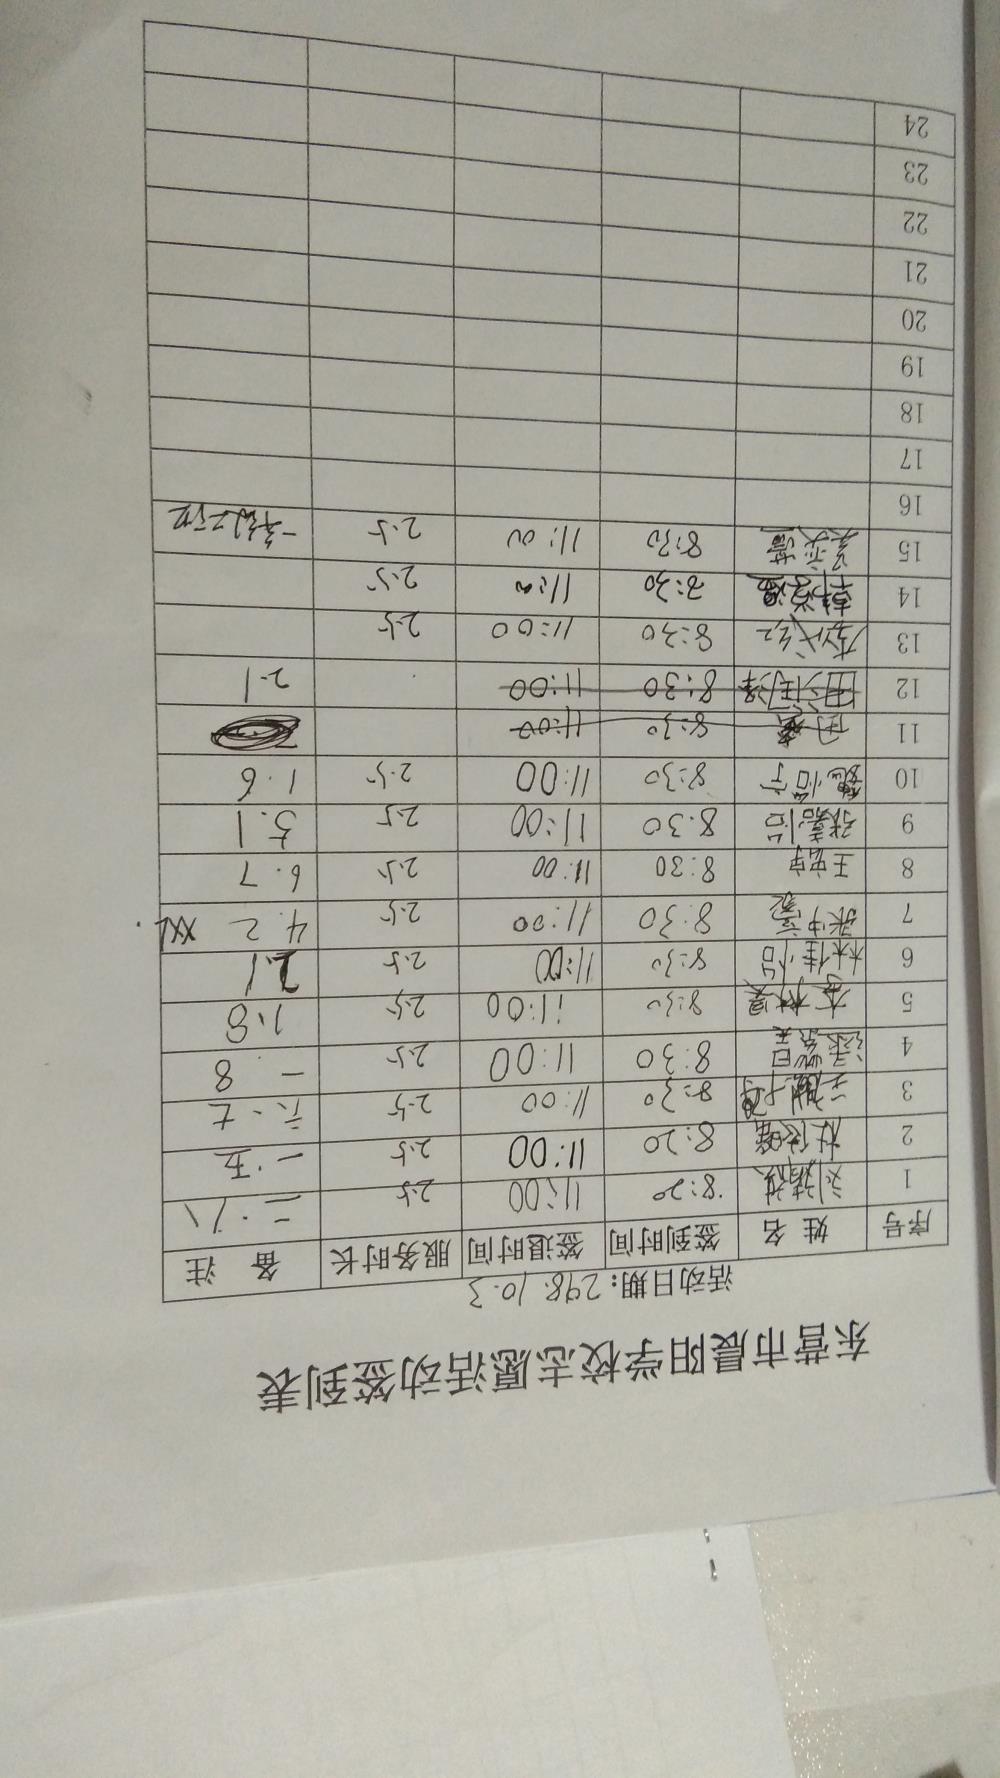 东营市晨阳学校志愿活动签到表
活动日期：298.10.3
序号 姓名 签到时间 签退时间 服务时长 备注
1 8:20 11:00 2.5 二.八
2 8:20 11:00 2.5 一.五
3 8:30 11:00 2.5 六.七
4 8:30 11:00 2.5 一 8
5 8:30 11:00 2.5 1.8
6 林佳怡 8:30 11:00 2.5 2.1
7 8:30 11:00 2.5 4.2 XXL
8 王宏宇 8:30 11:00 2.5 6.7
9 张嘉怡 8:30 11:00 2.5 5.1
10 魏怡宁 8:30 11:00 2.5 1.6
11 8:30 11:00
12 8:30 11:00 2.1
13 8:30 11:00 2.5
14 8:30 11:00 2.5
15 8:30 11:00 2.5
16
17
18
19
20
21
22
23
24